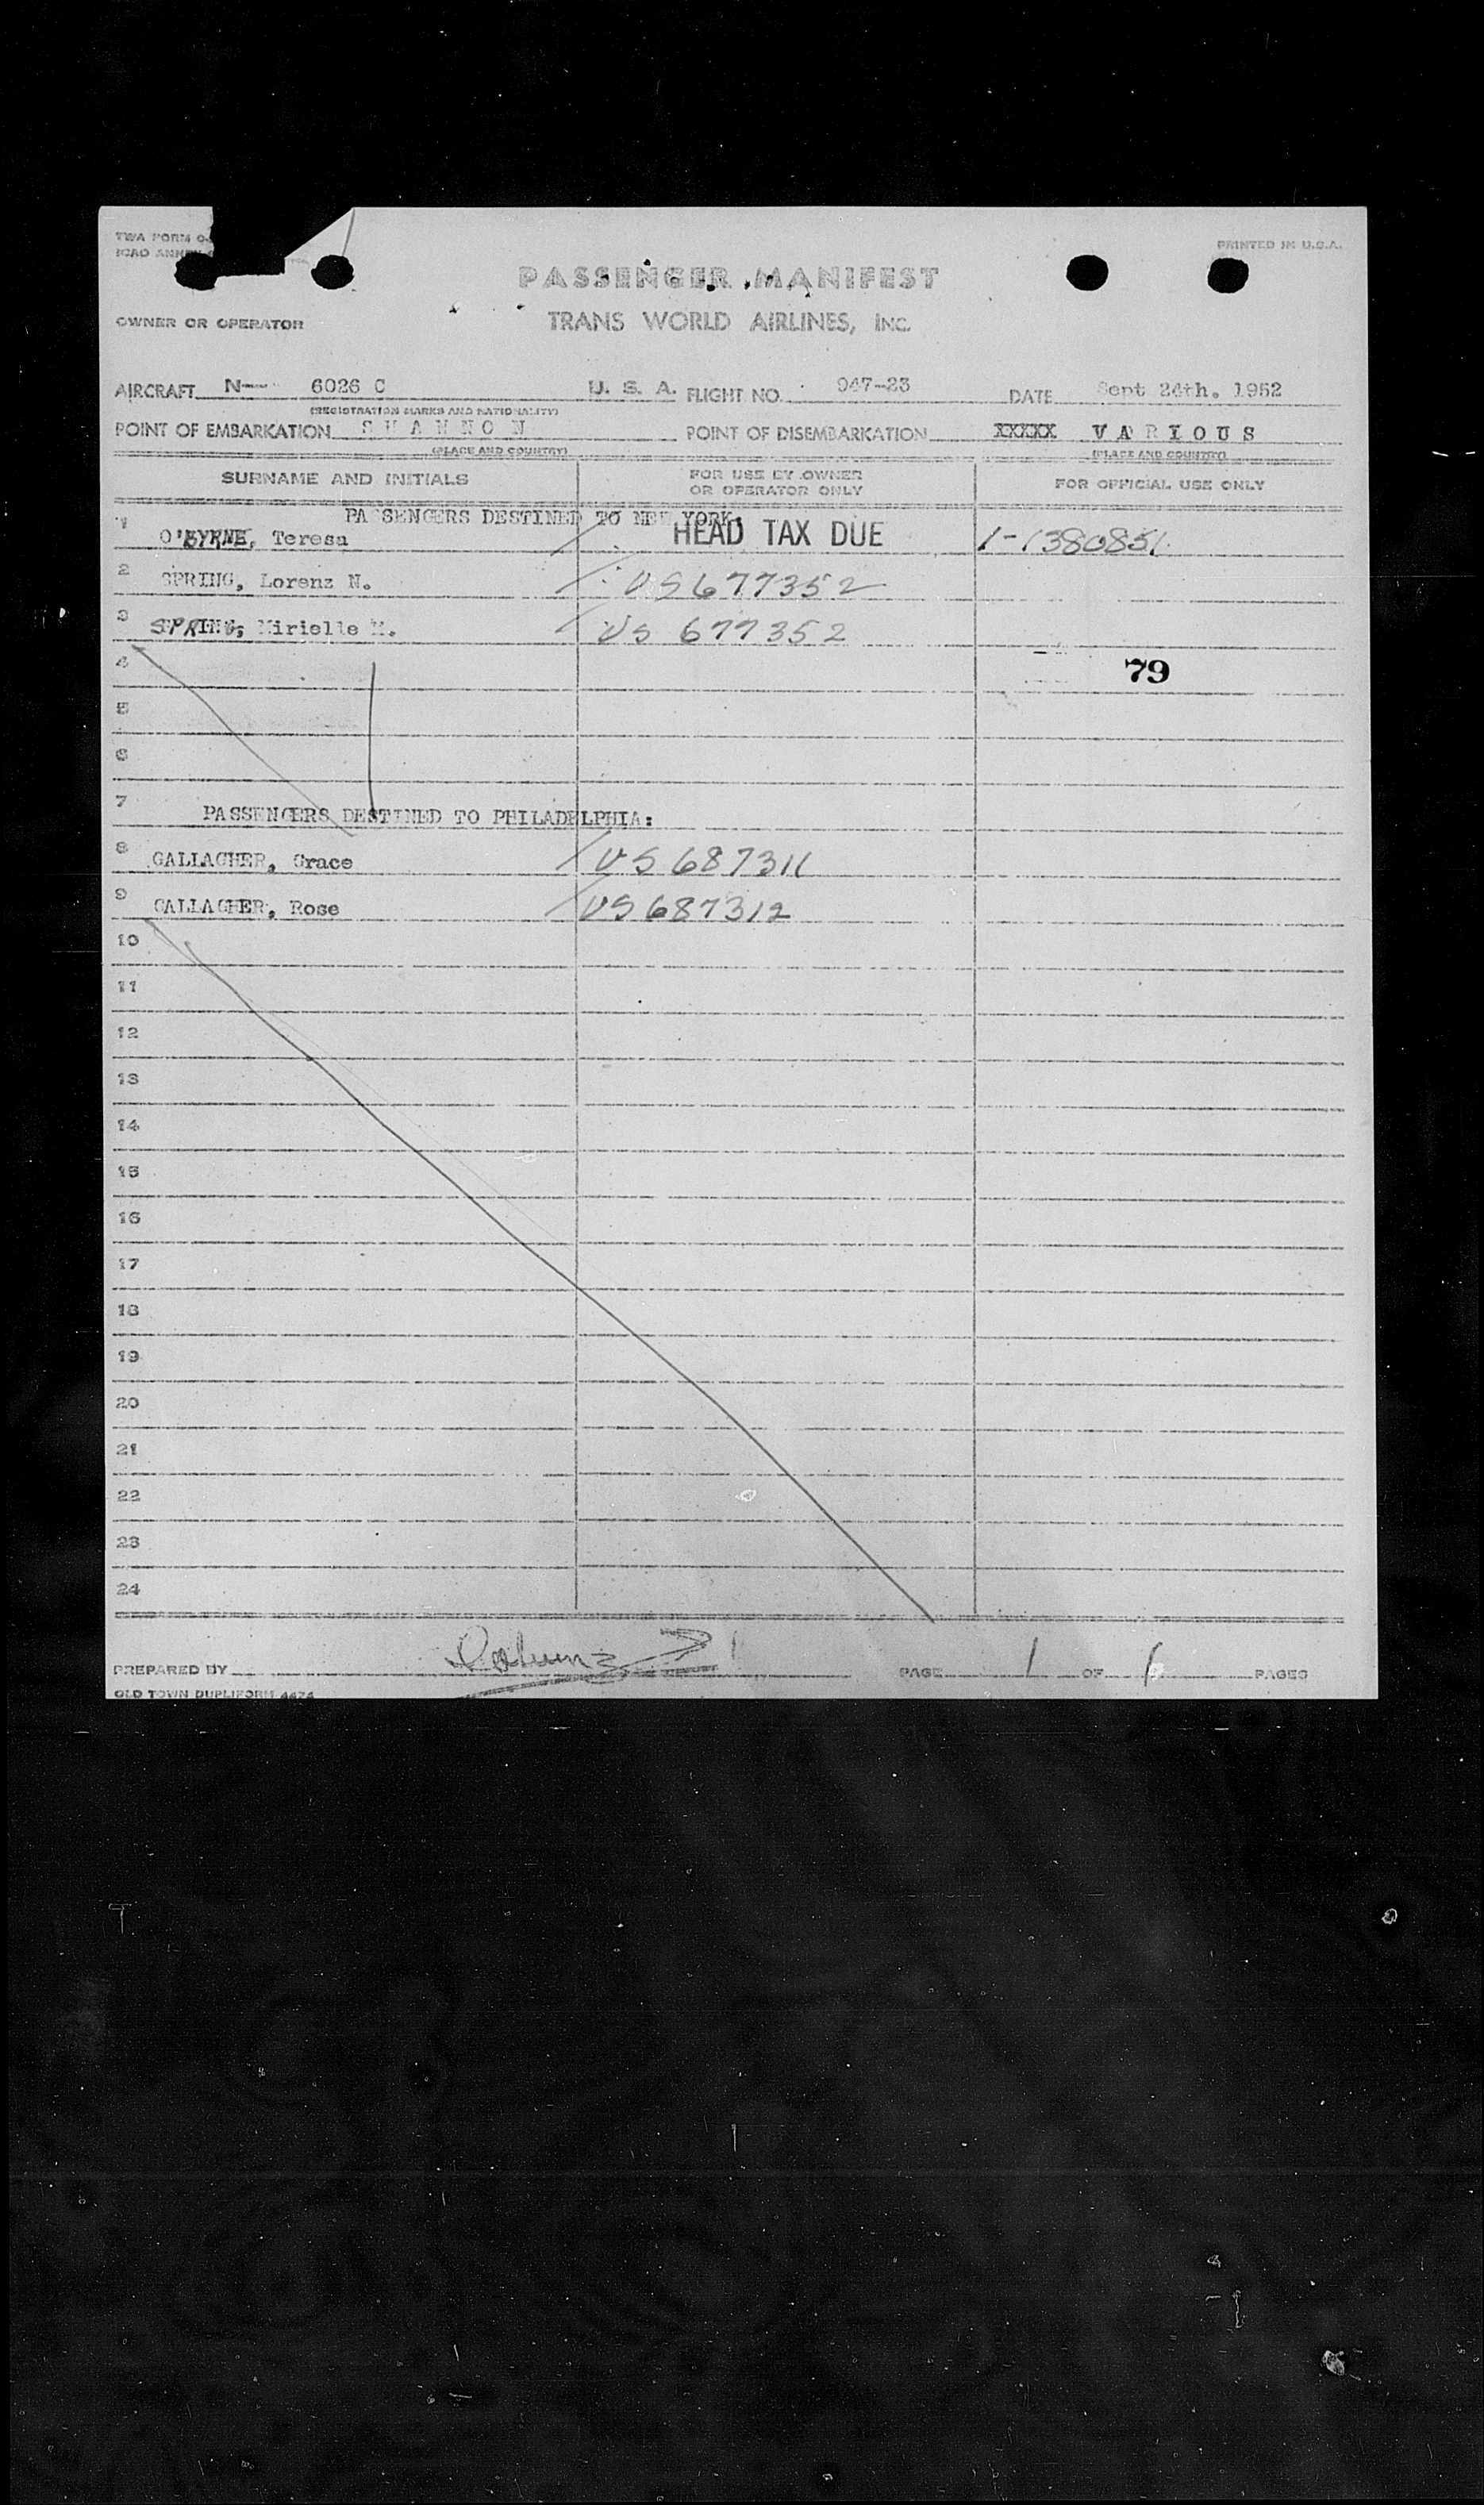 TWA FORM
PRINTED IN U.S.A.
ICAO ANNEX
PASSENGER MANIFEST
OWNER OR OPERATOR TRANS WORLD AIRLINES, INC.
AIRCRAFT N— 6026 C U. S. A. FLIGHT NO. 947-23 DATE Sept 24th. 1952
(REGISTRATION MARKS AND NATIONALITY)
POINT OF EMBARKATION S H A N N O N POINT OF DISEMBARKATION XXXXX V A R I O U S
(PLACE AND COUNTRY) (PLACE AND COUNTRY)
SURNAME AND INITIALS FOR USE BY OWNER OR OPERATOR ONLY FOR OFFICIAL USE ONLY
PASSENGERS DESTINED TO NEW YORK:
1 O'BYRNE, Teresa HEAD TAX DUE 1-1380851
2 SPRING, Lorenz N. US 677352
3 SPRING, Mirielle M. US 677352
4 79
5
6
7 PASSENGERS DESTINED TO PHILADELPHIA:
8 GALLAGHER, Grace US 687311
9 GALLAGHER, Rose US 687312
10
11
12
13
14
15
16
17
18
19
20
21
22
23
24
PREPARED BY PAGE 1 OF 1 PAGES
OLD TOWN DUPLIFORM 4474